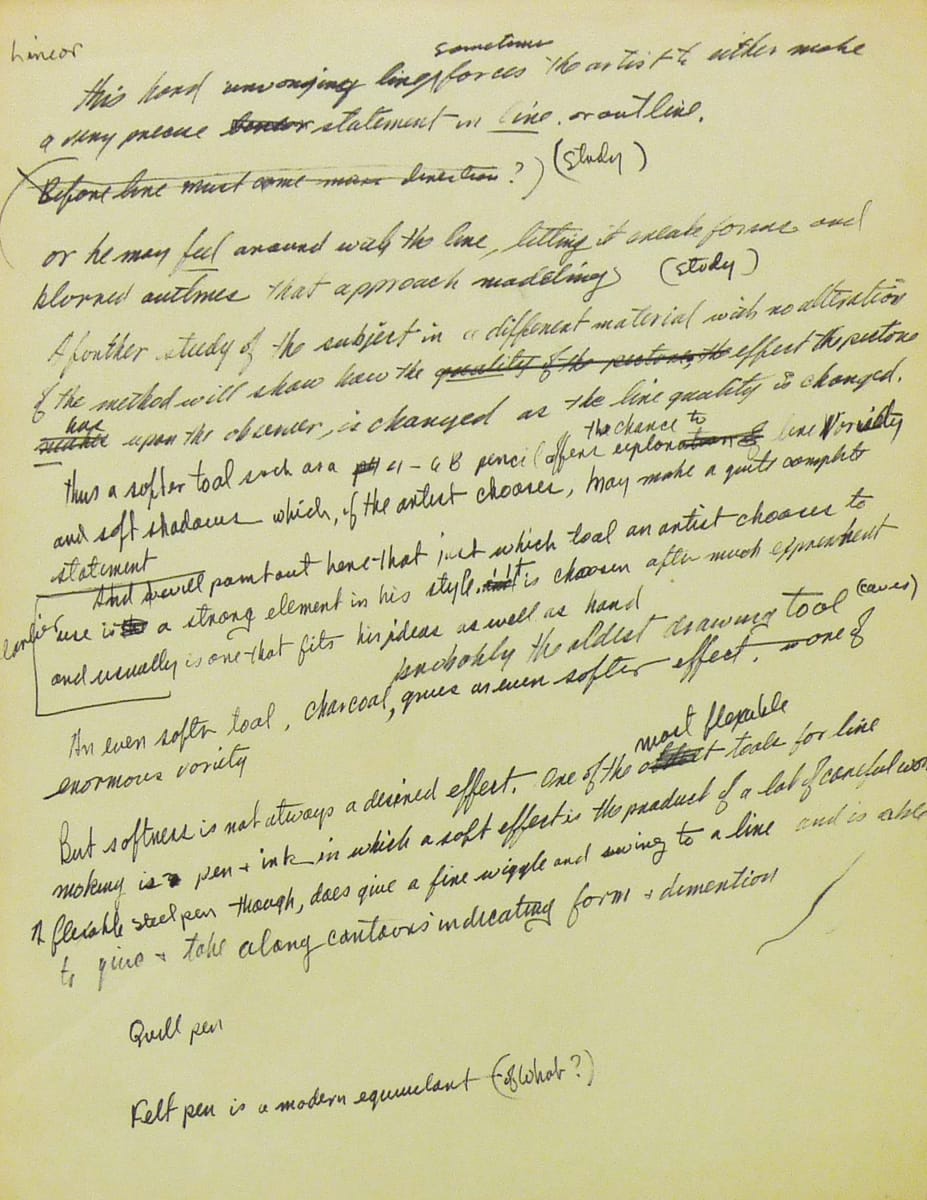 Linear
sometimes
this hard unvarying line forces the artist to either make
a very precise statement in line. or outline.
(Before line must come mass direction?) (study)
or he may feel around with the line, letting it create forms and
blurred outlines that approach modeling (study)
A further study of the subject in a different material with no alteration
of the method will show how the quality of the picture, the effect the picture
has
upon the observer, is changed as the line quality is changed.
the chance to
thus a softer tool such as a 4-6B pencil offers exploration of line variety
and soft shadows which, if the artist chooses, may make a quite complete
statement
And I will point out here that just which tool an artist chooses to
earlier use is a strong element in his style. it is choosen after much experiment
and usually is one that fits his ideas as well as hand
probably the oldest drawing tool (caves)
An even softer tool, charcoal, gives an even softer effect. one of
enormous variety
most flexible
But softness is not always a desired effect. One of the tools for line
making is pen + ink in which a soft effect is the product of a lot of careful work
A flexible steel pen though, does give a fine wiggle and swing to a line and is able
to give + take along contours indicating form + dimention
Quill pen
Felt pen is a modern equivulant (of what?)